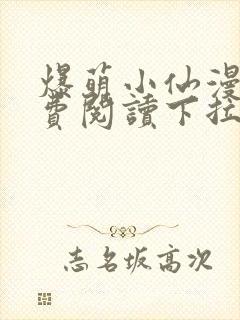 爆萌小仙漫
費閱讀下拉
志名坂高次